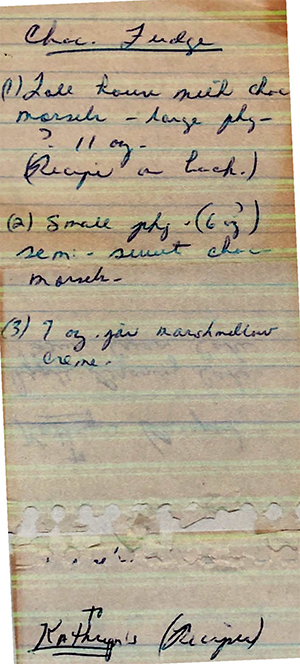 Choc. Fudge
(1) Toll house milk choc
morsels - large pkg -
? 11 oz -
(Recipe on back.)
(2) Small pkg - (6 oz)
semi - sweet choc
morsels -
(3) 7 oz. jar marshmellow
creme.
Kathryn's (Recipes)